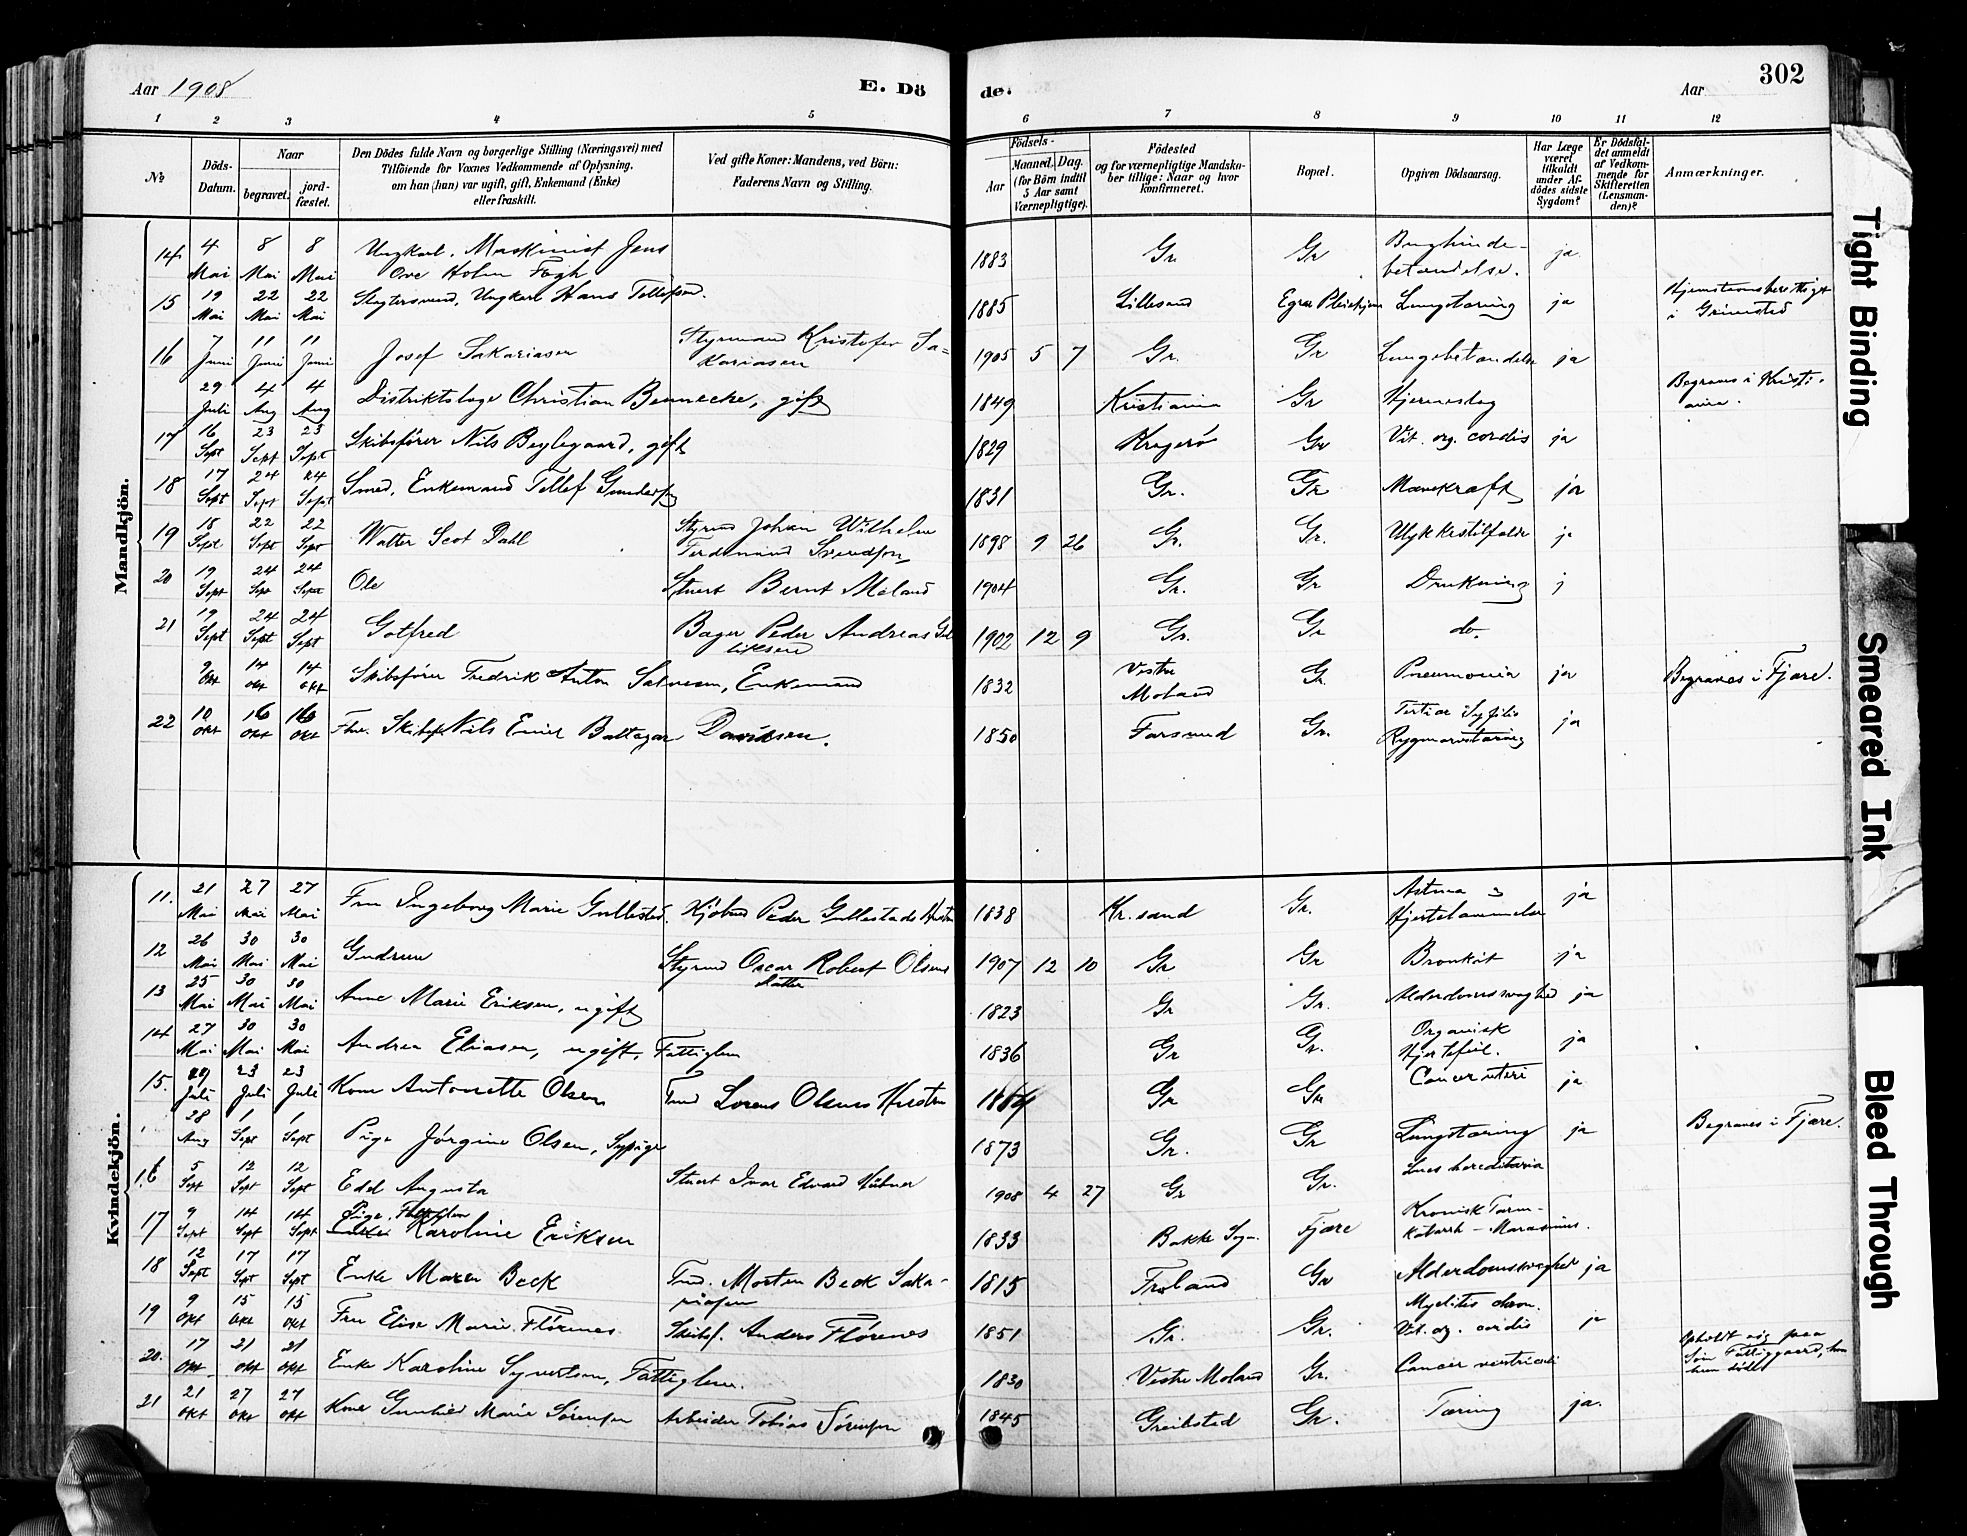 Aar 1908 E. Dö de. Aar 302
1 2 3 4 5 6 7 8 9 10 11 12
№ Döds-Datum. Naar begravet. jord-fæstet.
Den Dödes fulde Navn og borgerlige Stilling (Næringsvei) med
Tilföiende for Voxnes Vedkommende af Oplysning,
om han (hun) var ugift, gift, Enkemand (Enke)
eller fraskilt.
Ved gifte Koner: Mandens, ved Börn:
Faderens Navn og Stilling.
Födsels-
Aar Maaned. Dag.
(for Börn indtil
5 Aar samt
Værnepligtige).
Födested
og for værnepligtige Mandska-
ber tillige: Naar og hvor
konfirmeret.
Bopæl.
Opgiven Dödsaarsag.
Har Læge
været
tilkaldt
under Af-
dödes sidste
Sygdom?
Er Dödsfal-
det anmeldt
af Vedkom-
mende for
Skifteretten
(Lensman-
den)?
Anmærkninger.
Mandkjön.
14 4 Mai 8 Mai 8 Mai Ungkarl, Maskinist Jens Ove Holm Fogh 1883 Gr Gr Bughindebetændelse. ja
15 19 Mai 22 Mai 22 Mai Ungkarl Hans Tellefsen. 1885 Lillesand Lungetæring ja Hjemstavnsberettiget i Grimstad
16 7 Juni 11 Juni 11 Juni Josef Sakariasen Styrmand Kristofer Sakariasen 1905 5 7 Gr. Gr Lungebetændelse ja
29 Juli 4 Aug 4 Aug Distriktslæge Christian Bennecke, gift 1849 Kristiania Gr Hjerneslag Begraves i Kristiania.
17 16 Sept 23 Sept 23 Sept Skibsfører Nils Beylegaard, gift 1829 Kragerø Gr Vit. org. cordis ja
18 17 Sept 24 Sept 24 Sept Smed, Enkemand Tellef Gundersen 1831 Gr. Gr Mavekræft ja
19 18 Sept 22 Sept 22 Sept Walter Scot Dahl Styrmd Johan Wilhelm Ferdinand Svendsen 1898 9 26 Gr. Gr. Ulykkestilfælde j
20 19 Sept 24 Sept 24 Sept Ole Stuert Bernt Moland 1904 Gr. Gr Drukning j
21 19 Sept 24 Sept 24 Sept Gotfred Bager Peder Andreas 1902 12 9 Gr. Gr do.
9 Okt 14 Okt 14 Okt Skibsfører Fredrik Anton Salvesen, Enkemand 1832 Vestre Moland Gr. Pneumonia ja Begraves i Fjære.
22 10 Okt 16 Okt 16 Okt Fhv. Skibsf. Nils Emil Baltazar Daviksen. 1850 Farsund Gr. Tertiær Syfilis Rygmarvstæring ja
Kvindekjön.
11. 21 Mai 27 Mai 27 Mai Fru Ingeborg Marie Gullestad. Kjøbmd Peder Gullestads Hustru 1838 Kr.sand Gr. Astma & Hjertelammelse ja
12 26 Mai 30 Mai 30 Mai Gudrun Styrmd Oscar Robert Olsens datter 1907 12 10 Gr Gr Bronkit ja
13 25 Mai 30 Mai 30 Mai Anne Marie Eriksen, ugift 1823 Gr Gr. Alderdomssvaghed ja
14 27 Mai 30 Mai 30 Mai Andrea Eliasen, ugift, Fattiglem 1836 Gr Gr. Organisk Hjertefeil. ja
15. Juli 23 Juli 23 Juli Kone Antonette Olsen Tmd Lorens Olsens Hustru Gr Gr Cancer uteri ja
28 Aug 1 Sept 1 Sept Pige Jørgine Olsen, Sypige 1873 Gr. Gr Lungetæring ja Begraves i Fjære.
16 5 Sept 12 Sept 12 Sept Edel Augusta Stuert Ivar Edvard Hübner 1908 4 27 Gr Gr. Lues hereditaria
17 9 Sept 14 Sept 14 Sept Pige, Fattiglem Karoline Eriksen 1833 Bakke Sogn Fjære Kronisk Tarmkatarrh – Marasmus.
18 12 Sept 17 Sept 17 Sept Enke Maren Beck Tmd. Morten Beck Sakariasen 1815 Froland Gr Alderdomssvaghed ja
19 9 Okt 15 Okt 15 Okt Fru Elise Marie Flørenes Skibsf. Anders Flørenes 1851 Gr. Gr. Myelitis chron. Vit. og. cordis ja
20. 17 Okt 21 Okt 21 Okt Enke Karoline Syvertsen, Fattiglem. 1830 Vestre Moland Gr. Cancer ventriculi opholdt sig paa Fattiggaard, hvor hun døde
21 21 Okt 27 Okt 27 Okt Kone Gunhild Marie Sørensen Arbeider Tobias Sørensen 1845 Greibsted Gr. Tæring ja.
Tight Binding
Smeared Ink
Bleed Through